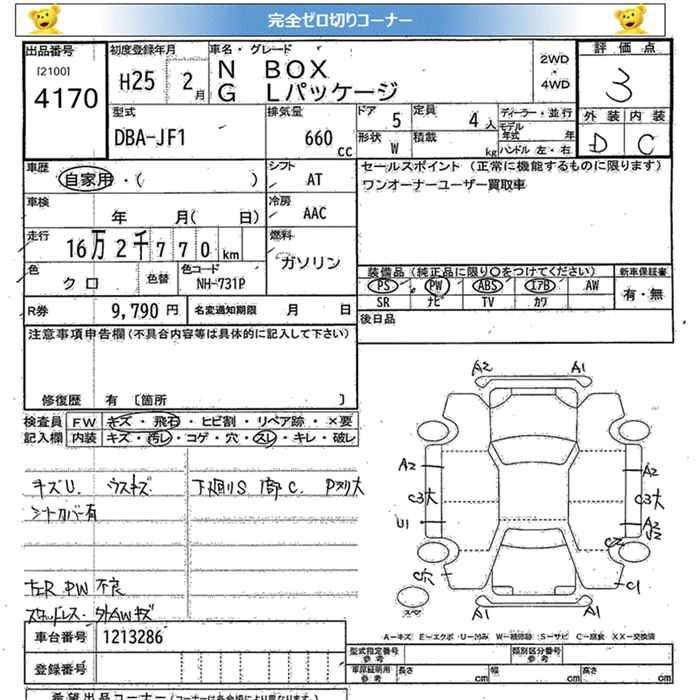 完全ゼロ切りコーナー
出品番号 初度登録年月 車名・グレード 評価点
[2100] 4170 H25 2月 N BOX 2WD・4WD 3
G Lパッケージ
型式 排気量 ドア 5 定員 4人 ディーラー・並行 外装 内装
DBA-JF1 660cc 形状 W 積載 kg モデル年式 年 D C
ハンドル 左・右
車歴 シフト セールスポイント (正常に機能するものに限ります)
自家用・( ) AT ワンオーナーユーザー買取車
車検 冷房
年 月( 日) AAC
走行 燃料
16万2千770km ガソリン
色 色替 色コード 装備品(純正品に限り〇をつけてください) 新車保証書
クロ NH-731P PS PW ABS エアB AW 有・無
SR ナビ TV カワ
R券 9,790円 名変通知期限 月 日 後日品
注意事項申告欄(不具合内容等は具体的に記入して下さい)
修復歴 有 [箇所 ]
検査員 FW キズ・飛石・ヒビ割・リペア跡・×要
記入欄 内装 キズ・汚レ・コゲ・穴・スレ・キレ・破レ
キズU. ウスキズ 下廻りS 1部C.
シートカバー有
PW 不良
スタッドレス・外AWキズ
A2 A1
A2 A2
C3大 C3大
U1 A2
C2
C1
A1 A1
車台番号 1213286
A－キズ E－エクボ・U－凹み W－補修跡 S－サビ C－腐食 XX－交換済
登録番号 型式指定番号 参考 類別区分番号 参考
車庫証明用 参考 長さ cm 幅 cm 高さ cm
希望出品コーナー